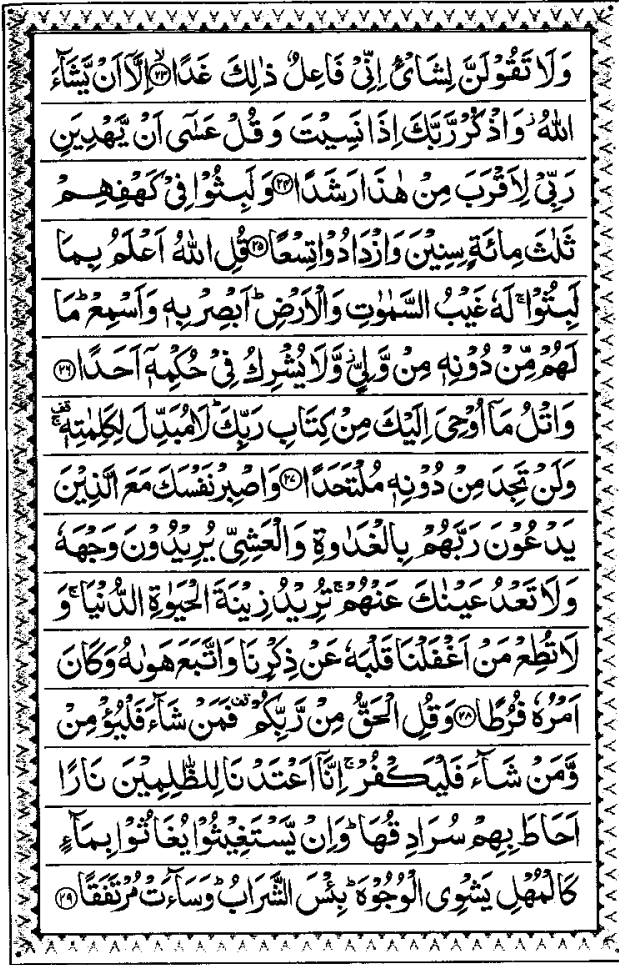 وَلَا تَقُوْلَنَّ لِشَائْءٍ اِنِّيْ فَاعِلٌ ذٰلِكَ غَدًا ۙ﴿۲۳﴾ اِلَّاۤ اَنْ يَّشَآءَ
اللّٰهُ ؗ وَاذْكُرْ رَّبَّكَ اِذَا نَسِيْتَ وَ قُلْ عَسٰۤى اَنْ يَّهْدِيَنِ
رَبِّيْ لِاَقْرَبَ مِنْ هٰذَا رَشَدًا ﴿۲۴﴾ وَ لَبِثُوْا فِيْ كَهْفِهِمْ
ثَلٰثَ مِائَةٍ سِنِيْنَ وَازْدَادُوْا تِسْعًا ﴿۲۵﴾ قُلِ اللّٰهُ اَعْلَمُ بِمَا
لَبِثُوْا ۚ لَهٗ غَيْبُ السَّمٰوٰتِ وَالْاَرْضِ ؕ اَبْصِرْ بِهٖ وَاَسْمِعْ ؕ مَا
لَهُمْ مِّنْ دُوْنِهٖ مِنْ وَّلِيٍّ ؗ وَّلَا يُشْرِكُ فِيْ حُكْمِهٖۤ اَحَدًا ﴿۲۶﴾
وَاتْلُ مَاۤ اُوْحِيَ اِلَيْكَ مِنْ كِتَابِ رَبِّكَ ؕ لَا مُبَدِّلَ لِكَلِمٰتِهٖ ۚ قف
وَلَنْ تَجِدَ مِنْ دُوْنِهٖ مُلْتَحَدًا ﴿۲۷﴾ وَاصْبِرْ نَفْسَكَ مَعَ الَّذِيْنَ
يَدْعُوْنَ رَبَّهُمْ بِالْغَدٰوةِ وَالْعَشِيِّ يُرِيْدُوْنَ وَجْهَهٗ
وَلَا تَعْدُ عَيْنٰكَ عَنْهُمْ ۚ تُرِيْدُ زِيْنَةَ الْحَيٰوةِ الدُّنْيَا ۚ وَ
لَا تُطِعْ مَنْ اَغْفَلْنَا قَلْبَهٗ عَنْ ذِكْرِنَا وَاتَّبَعَ هَوٰىهُ وَكَانَ
اَمْرُهٗ فُرُطًا ﴿۲۸﴾ وَقُلِ الْحَقُّ مِنْ رَّبِّكُمْ قف فَمَنْ شَآءَ فَلْيُؤْمِنْ
وَّمَنْ شَآءَ فَلْيَكْفُرْ ۚ اِنَّاۤ اَعْتَدْنَا لِلظّٰلِمِيْنَ نَارًا
اَحَاطَ بِهِمْ سُرَادِقُهَا ؕ وَاِنْ يَّسْتَغِيْثُوْا يُغَاثُوْا بِمَآءٍ
كَالْمُهْلِ يَشْوِي الْوُجُوْهَ ؕ بِئْسَ الشَّرَابُ ؕ وَسَآءَتْ مُرْتَفَقًا ﴿۲۹﴾